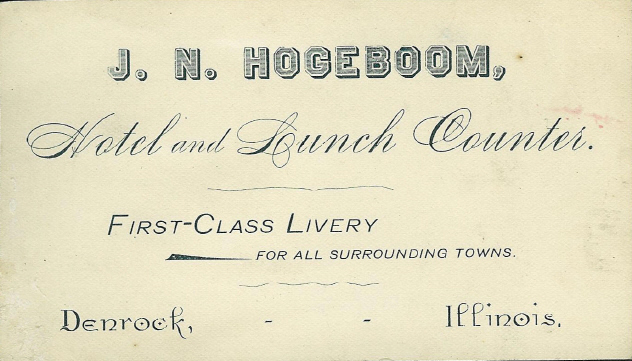 J. N. HOGEBOOM,
Hotel and Lunch Counter.
FIRST-CLASS LIVERY
FOR ALL SURROUNDING TOWNS.
Denrock, - - Illinois.